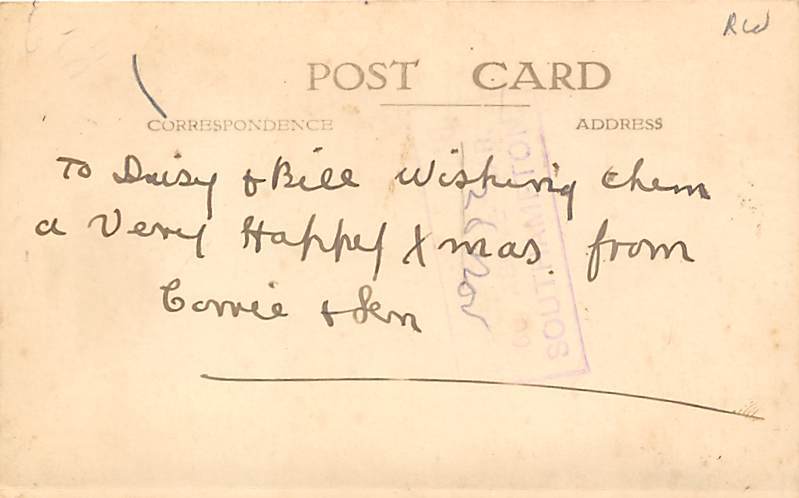 RW
POST CARD
CORRESPONDENCE
ADDRESS
To Daisy & Bill Wishing them
a Very Happy Xmas. from
Corrie &